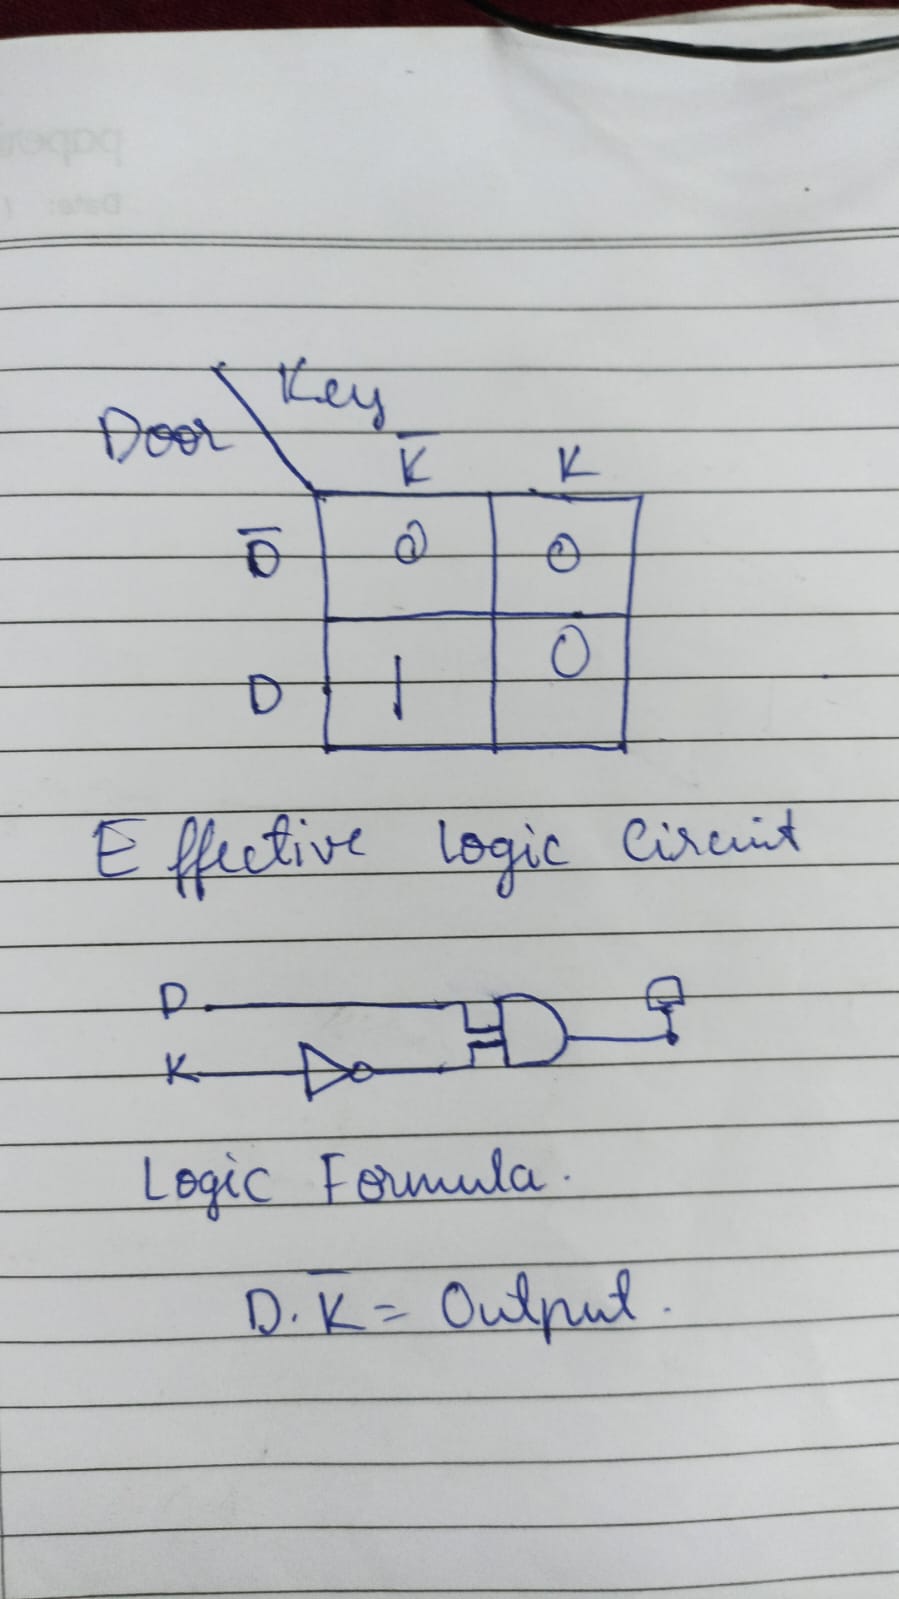 Key
Door
K̅ K
D̅ 0 0
D 1 0
Effective Logic Circuit
D
K
Logic Formula.
D.K̅ = Output.